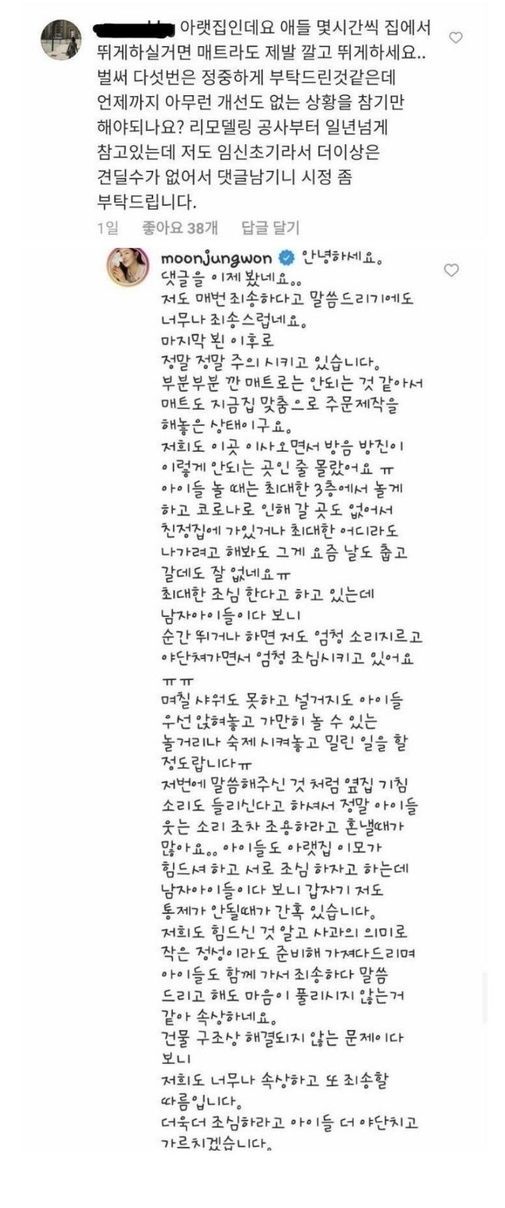 아랫집인데요 애들 몇시간씩 집에서
뛰게하실거면 매트라도 제발 깔고 뛰게하세요..
벌써 다섯번은 정중하게 부탁드린것같은데
언제까지 아무런 개선도 없는 상황을 참기만
해야되나요? 리모델링 공사부터 일년넘게
참고있는데 저도 임신초기라서 더이상은
견딜수가 없어서 댓글남기니 시정 좀
부탁드립니다.
1일 좋아요 38개 답글 달기
moonjungwon 안녕하세요.
댓글을 이제 봤네요..
저도 매번 죄송하다고 말씀드리기에도
너무나 죄송스럽네요.
마지막 뵌 이후로
정말 정말 주의 시키고 있습니다.
부분부분 깐 매트로는 안되는 것 같아서
매트도 지금집 맞춤으로 주문제작을
해놓은 상태이구요.
저희도 이곳 이사오면서 방음 방진이
이렇게 안되는 곳인 줄 몰랐어요 ㅠ
아이들 놀 때는 최대한 3층에서 놀게
하고 코로나로 인해 갈 곳도 없어서
친정집에 가있거나 최대한 어디라도
나가려고 해봐도 그게 요즘 날도 춥고
갈데도 잘 없네요ㅠ
최대한 조심 한다고 하고 있는데
남자아이들이다 보니
순간 뛰거나 하면 저도 엄청 소리지르고
야단쳐가면서 엄청 조심시키고 있어요
ㅠㅠ
며칠 샤워도 못하고 설거지도 아이들
우선 앉혀놓고 가만히 놀 수 있는
놀거리나 숙제 시켜놓고 밀린 일을 할
정도랍니다ㅠ
저번에 말씀해주신 것 처럼 옆집 기침
소리도 들리신다고 하셔서 정말 아이들
웃는 소리 조차 조용하라고 혼낼때가
많아요.. 아이들도 아랫집 이모가
힘드셔 하고 서로 조심 하자고 하는데
남자아이들이다 보니 갑자기 저도
통제가 안될때가 간혹 있습니다.
저희도 힘드신 것 알고 사과의 의미로
작은 정성이라도 준비해 가져다드리며
아이들도 함께 가서 죄송하다 말씀
드리고 해도 마음이 풀리시지 않는거
같아 속상하네요.
건물 구조상 해결되지 않는 문제이다
보니
저희도 너무나 속상하고 또 죄송할
따름입니다.
더욱더 조심하라고 아이들 더 야단치고
가르치겠습니다.